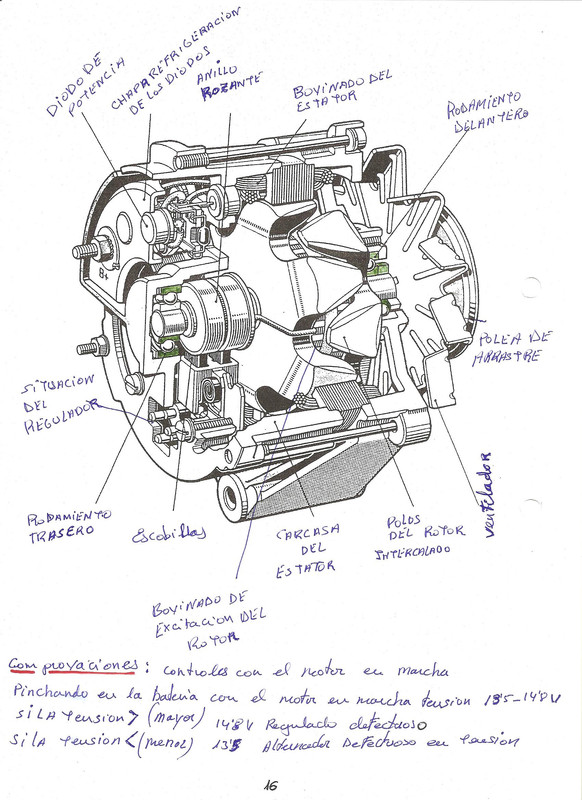 DIODO DE
POTENCIA
CHAPA REFRIGERACION
DE LOS DIODOS
ANILLO
ROZANTE
BOVINADO DEL
ESTATOR
RODAMIENTO
DELANTERO
B+
POLEA DE
ARRASTRE
SITUACION
DEL
REGULADOR
RODAMIENTO
TRASERO
Escobillas
CARCASA
DEL
ESTATOR
POLOS
DEL ROTOR
INTERCALADO
ventilador
BOVINADO DE
EXCITACION DEL
ROTOR
Comproyaciones: controles con el motor en marcha
Pinchando en la bateria con el motor en marcha tension 13'5-14'8V
Si LA tension > (mayor) 14'8V Regulado defectuoso
Si LA tension < (menor) 13'5 Alternador Defectuoso en tension
16